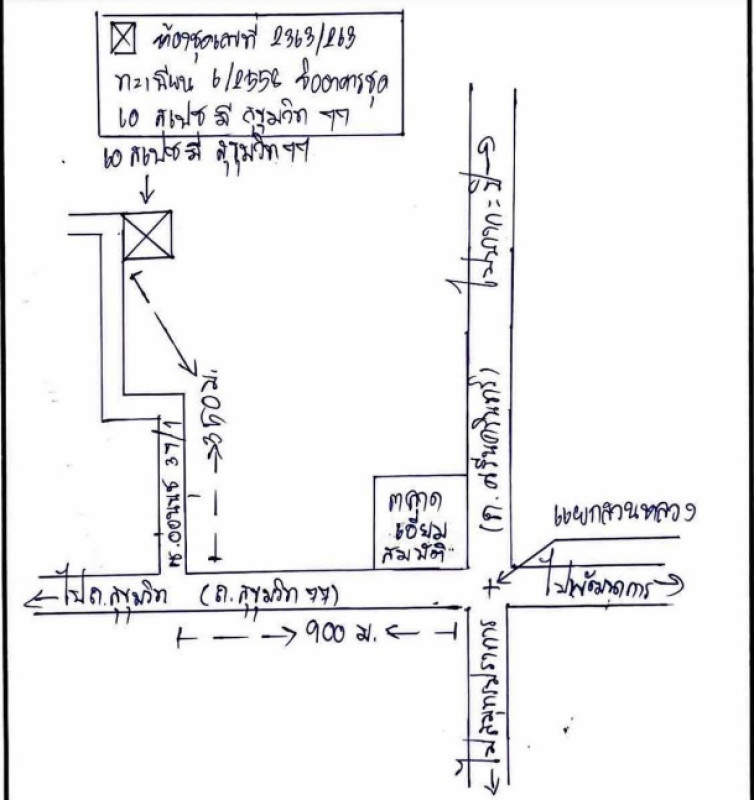 ห้องชุดเลขที่ 2363/263
ทะเบียน 6/2556 ชื่ออาคารชุด
เอ สเปซ มี สุขุมวิท 77
เอ สเปซ มี สุขุมวิท 77
ไปบางกะปิ
(ถ. ศรีนครินทร์)
360 ม.
ซ.อ่อนนุช 37/1
ตลาด
เอี่ยม
สมบัติ
แยกสวนหลวง
ไปถ.สุขุมวิท (ถ.สุขุมวิท 77)
ไปพัฒนาการ
900 ม.
ไปสมุทรปราการ